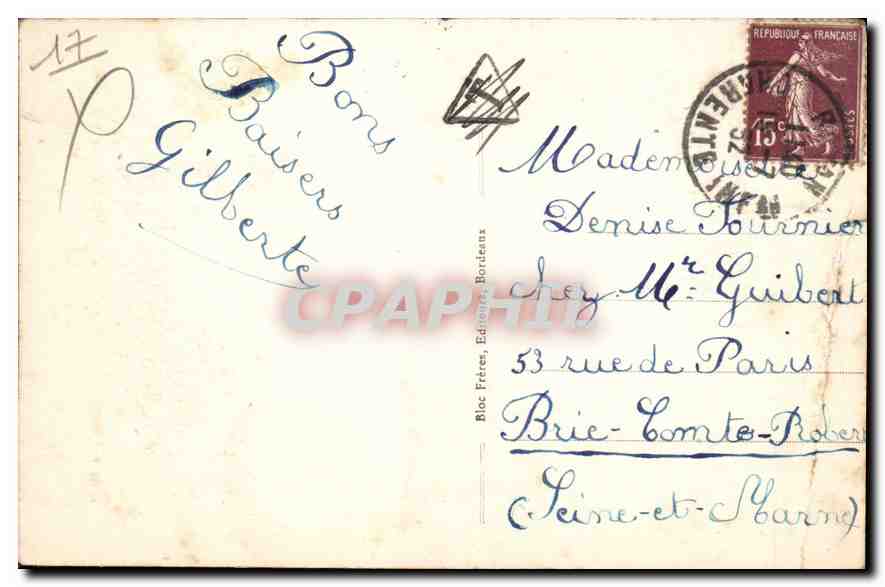 17
Bons
Baisers
Gilberte
T
REPUBLIQUE FRANÇAISE
15c
POSTES
CHARENTE
Mademoiselle
Denise Fournier
chez Mr Guibert
53 rue de Paris
Brie-Comte-Rober
(Seine-et-Marne)
Bloc Frères, Editeurs, Bordeaux
CPAPHIL